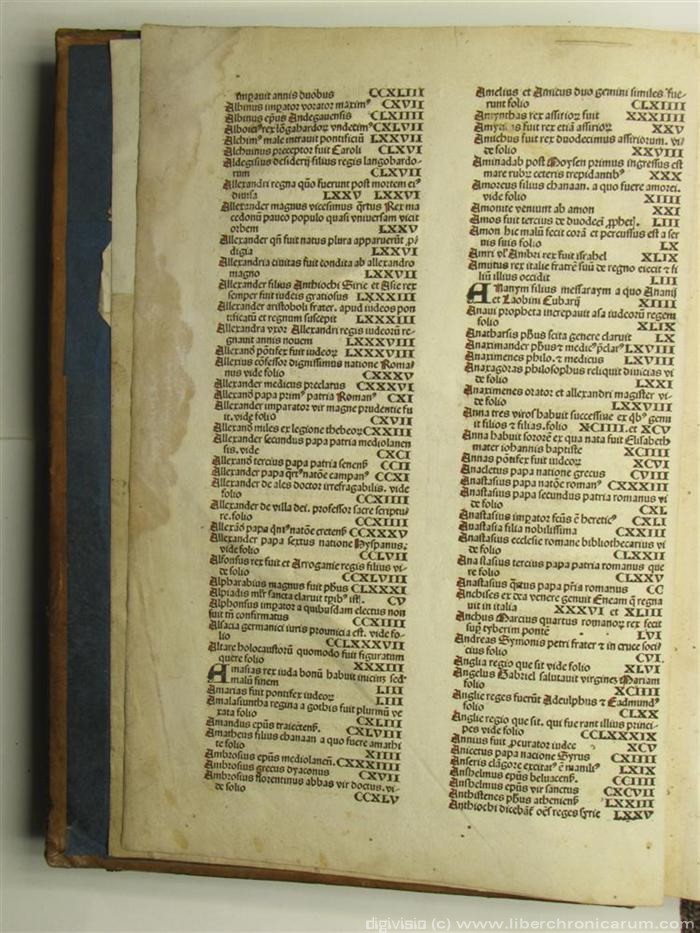 imperauit annis duobus CCXLIII
Albinus imperator vorator maximꝰ CXVII
Albinus epūs Andegauensis CLXIIII
Alboinꝰ rex lōgobardoꝝ vndecimꝰ CXLVII
Alchimꝰ male intrauit pontificiū LXXVII
Alchuinus preceptor fuit Caroli CLXVI
Aldegisus desiderij filius regis langobardo-
rum CLXVII
Allexandri regna quō fuerunt post mortem eiꝰ
diuisa LXXV LXXVI
Allexander magnus vicesimus qrtus Rex ma
cedonū pauco populo quasi vniuersam vicit
orbem LXXV
Allexander qn̄ fuit natus plura apparuerūt ꝓ
digia LXXVI
Allexandria ciuitas fuit condita ab allexandro
magno LXXVII
Allexander filius Anthiochi Sirie et Asie rex
semper fuit iudeis gratiosus LXXXIII
Allexander aristoboli frater. apud iudeos pon
tificatū et regnum suscepit LXXXIII
Allexandra vxor Allexandri regis iudeorū re-
gnauit annis nouem LXXXVIII
Allexand pōtifex fuit iudeoꝝ LXXXVIII
Allexius cōfessor dignissimus natione Roma
nus vide folio CXXXV
Allexander medicus preclatus CXXXVI
Allexand papa primꝰ patria Romanꝰ CXI
Allexander imparator vir magne prudentie fu
it. vide folio CXVII
Allexand miles ex legione thebeoꝝ CXXIII
Allexander secundus papa patria mediolanen
sis. vide CXCI
Allexand tercius papa patria senens CCII
Allexander papa qrtꝰ natōe campanꝰ CCXI
Allexander de ales doctor irrefragabilis. vide
folio CCXIIII
Allexander de villa dei. professor sacre scriptu
re. folio CCXIIII
Allexād papa qntꝰ natōe cretens CCXXXV
Allexander papa sextus natione Hyspanus.
vide folio CCLVII
Alfonsus rex fuit et Arrogonie regis filius vi-
de folio CCXLVIII
Alpharabius magnus fuit phūs CLXXXI
Alpiadis mlr̄ sancta claruit tpib CV
Alphonsus imperator a quibusdam electus non
fuit tn̄ confirmatus CCXIIII
Alsacia germanici iuris prouincia est. vide fo-
lio CCLXXXVII
Altare holocaustorū quomodo fuit figuratum
quere folio XXXIII
Amasias rex iuda bonū habuit iniciū sed
malū finem LIII
Amarias fuit pontifex iudeoꝝ LIII
Amalasuntha regina a gothis fuit plurimū ve
xata folio CXLIII
Amandus epūs traiectens CXLVIII
Amatheus filius chanaan a quo fuere amathi
te folio XIIII
Ambrosius epūs mediolanen CXXXIIII
Ambrosius grecus dyaconus CXVII
Ambrosius florentinus abbas vir doctus. vi-
de folio CCXLV
Amelius et Amicus duo gemini similes fue-
runt folio CLXIIII
Amynthas rex assirioꝝ fuit XXXIIII
fuit rex etiā assirioꝝ XXV
Amithus fuit rex duodecimus assiriorum. vi
de folio XXVIII
Aminadab post Moysen primus ingressus est
mare rubꝝ ceteris trepidantibꝰ XXX
Amoreus filius chanaan. a quo fuere amorei.
vide folio XIIII
Amonite veniunt ab amon XXI
Amos fuit tercius de duodeci ꝓphet. LIII
Amon hic malū fecit corā et percussus est a ser
uis suis folio LX
Amri vl Ambri rex fuit israhel XLIX
Amutus rex italie fratrē suū de regno eiecit et fi
liū illius occidit LIII
Anamym filius messaraym a quo Ananij
et Laobini Eubarij XIIII
Anani propheta increpauit asa iudeorū regem
folio XLIX
Anatharsis phūs scita genere claruit LX
Anaximander phūs et medicꝰ pclarꝰ LXVIII
Anaximenes philo. et medicus LVIII
Anaxagoras philosophus reliquit diuicias vi
de folio LXXI
Anaximenes orator et allexandri magister vi-
de folio LXXVIII
Anna tres viros habuit successiue ex qb genu
it filios et filias. folio XCIIII. et XCV
Anna habuit sororē ex qua nata fuit Elisabeth
mater iohannis baptiste XCIIII
Annas pōtifex fuit iudeoꝝ XCVI
Anacletus papa natione grecus CVIII
Anastasius papa natōe romanꝰ CXXXIII
Anastasius papa secundus patria romanus vi
de folio CXL
Anastasius imperator fcūs ē heretic CXLI
Anastasia filia nobilissima CXXIII
Anastasius ecclesie romane bibliothecarius vi
de folio CLXXII
Anastasius tercius papa patria romanus que
re folio CLXXV
Anastasius qrtus papa pria romanus CC
Anchises ex dea venere genuit Eneam q regna
uit in italia XXXVI et XLIII
Anchus Marcius quartus romanoꝝ rex fecit
sup tyberim pontē LVI
Andreas Symonis petri frater et in cruce soci
cius folio CVI.
Anglia regio que sit vide folio XLVI
Angelus Gabriel salutauit virginē Mariam
folio XCIIII
Anglie reges fuerūt Adeulphus et Eadmundꝰ
folio CLXX
Anglie regio que sit. qui fue rant illius princi-
pes vide folio CCLXXXIX
Annius fuit ꝓcurator iudee XCV
Anicetus papa nacione Syrus CXIIII
Anseris clāgore excitatꝰ ē manilꝰ LXIX
Anshelmus epūs beluacens CCIIII
Anshelmus epūs vir sanctus CXCVII
Anthistenes phūs atheniens LXXIII
Anthiochi dicebāt oēs reges syrie LXXV
digivisio (c) www.liberchronicarum.com